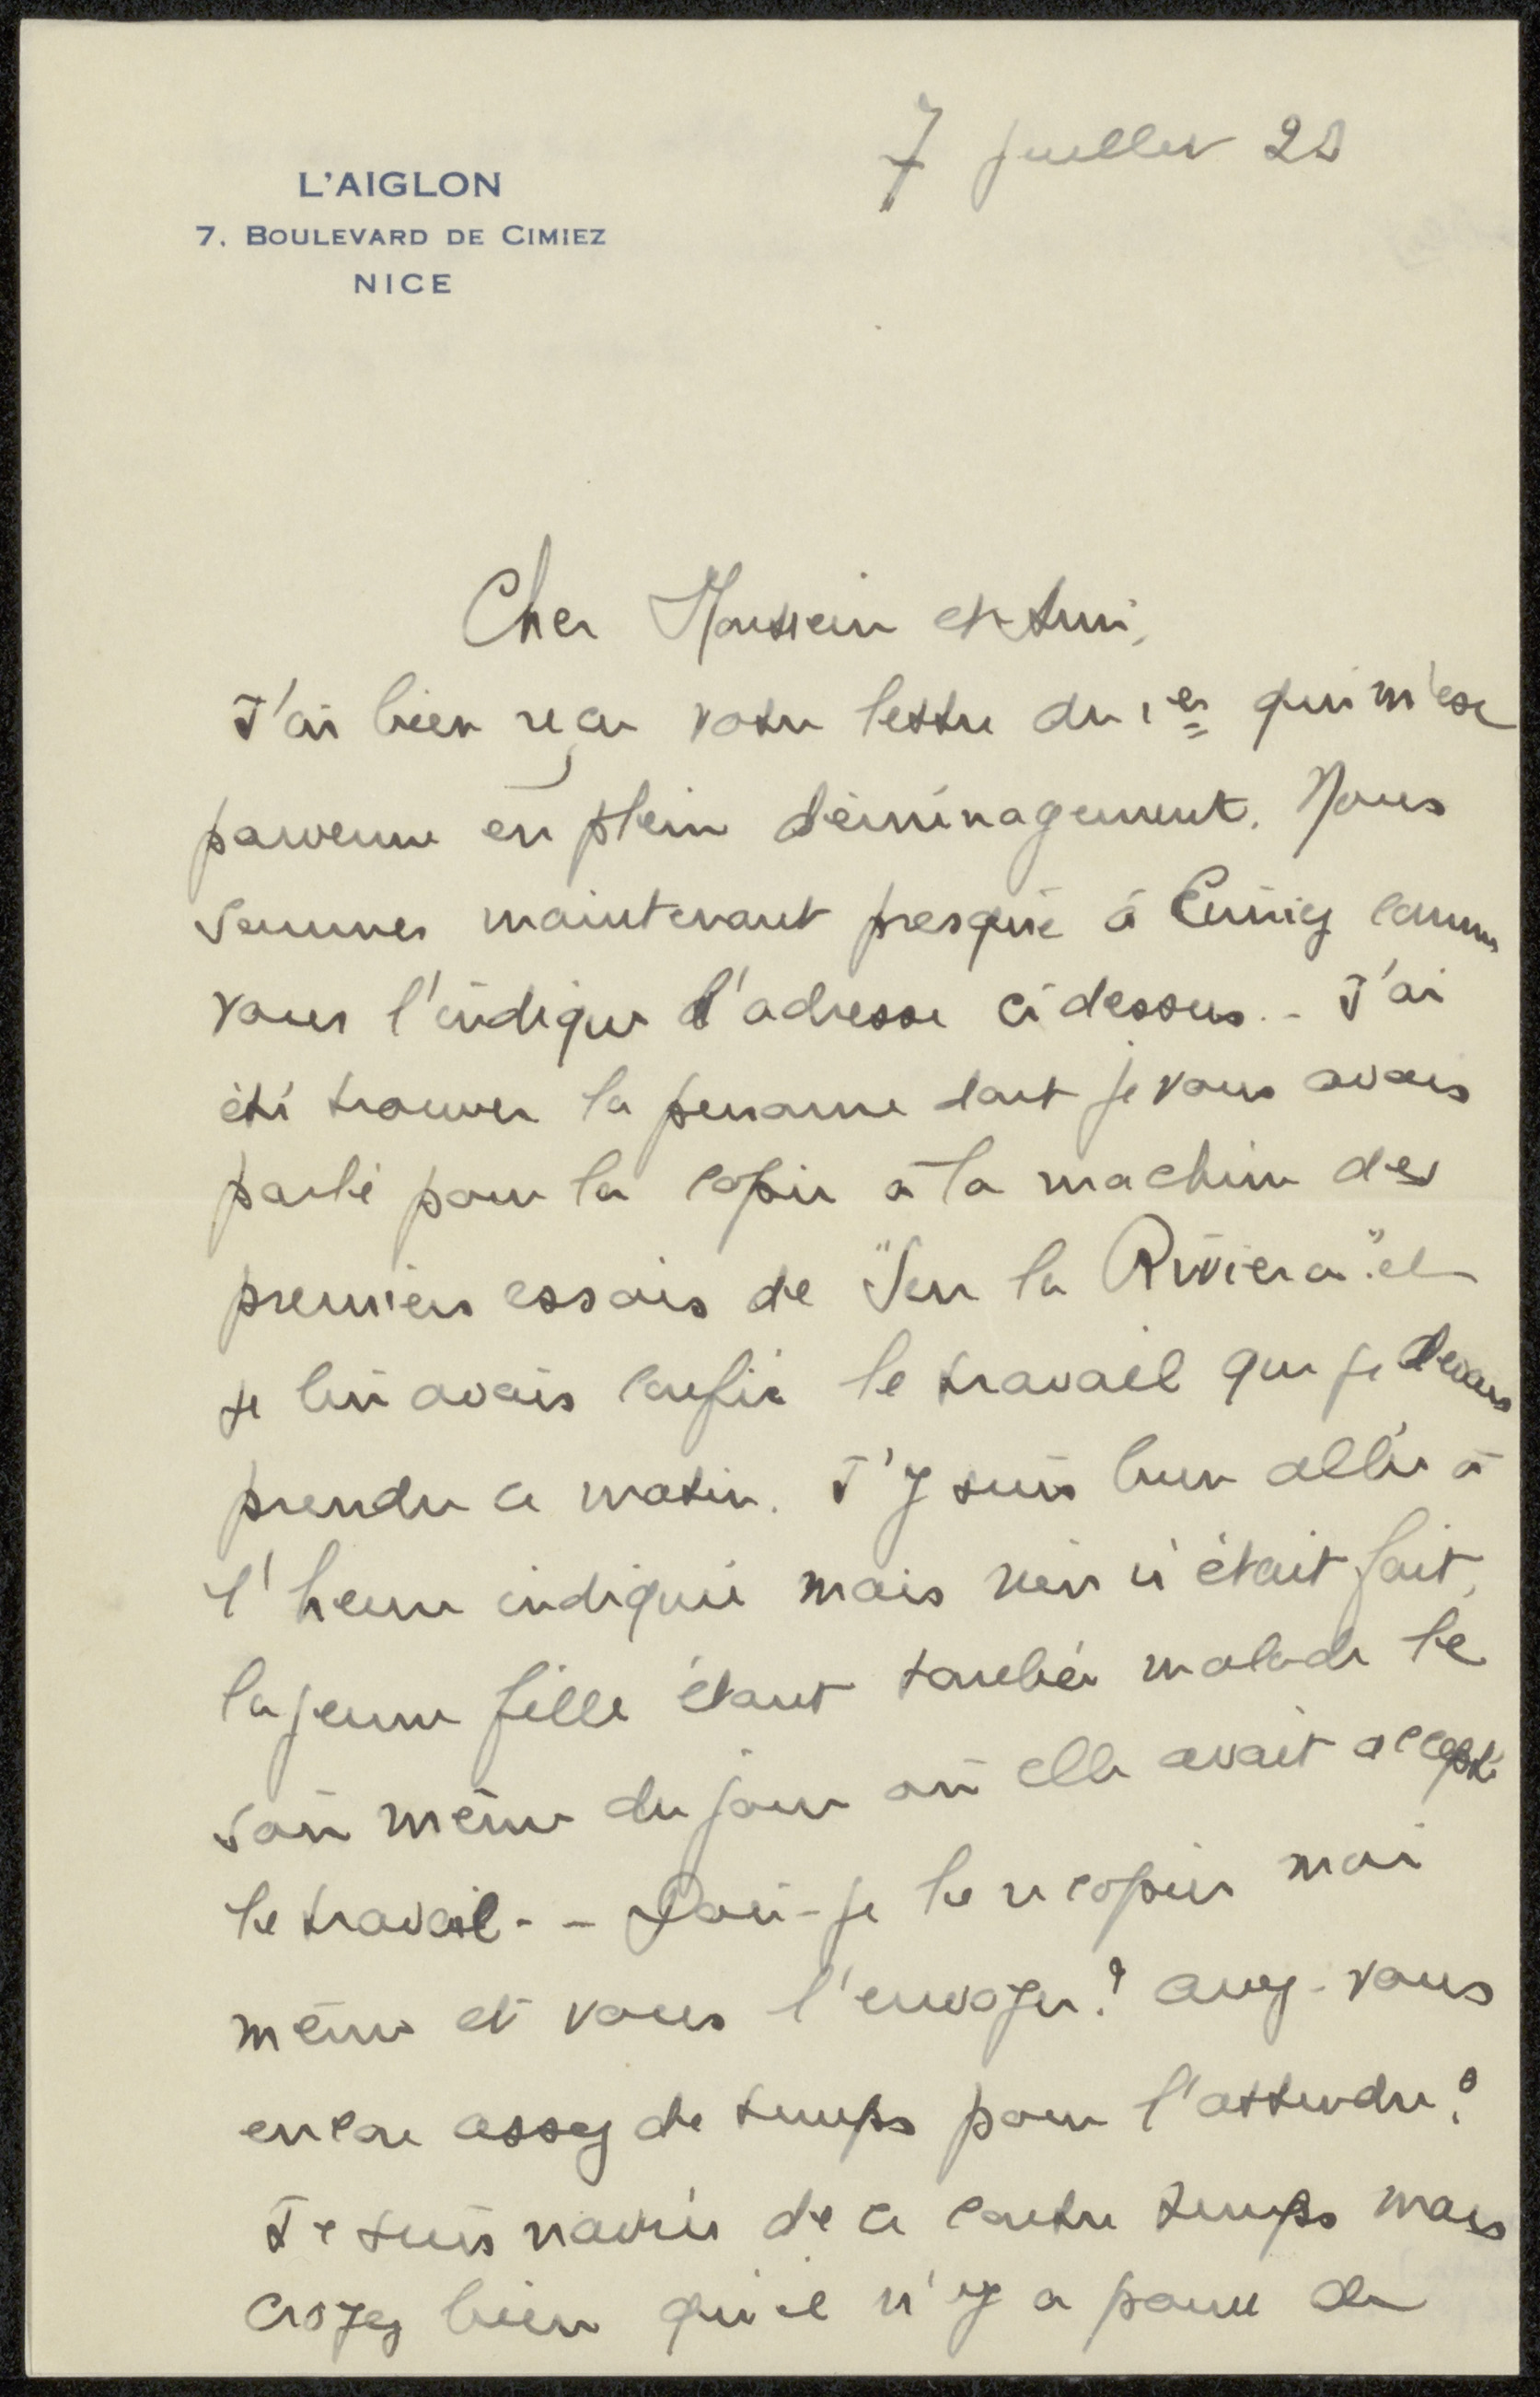 7 juillet 28
L'AIGLON
7, BOULEVARD DE CIMIEZ
NICE
Cher Monsieur et Ami,
J'ai bien reçu votre lettre du 1er qui m'est
parvenue en plein déménagement. Nous
sommes maintenant presque à Cimiez comme
vous l'indique l'adresse ci dessus. - J'ai
été trouver la personne dont je vous avais
parlé pour la copie à la machine des
premiers essais de "Sur la Riviera" et
je lui avais confié le travail que je devais
prendre ce matin. J'y suis bien allée à
l'heure indiquée mais rien n'était fait,
la jeune fille étant tombée malade le
soir même du jour où elle avait accepté
le travail. - - Dois-je le recopier moi
même et vous l'envoyer? avez-vous
encore assez de temps pour l'attendre?
Je suis navrée de ce contre temps mais
croyez bien qu'il n'y a pas de